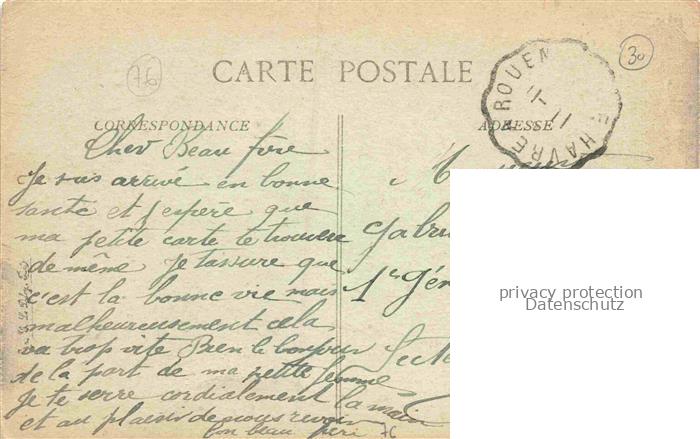 76
30
CARTE POSTALE
ROUEN
HAVRE
CORRESPONDANCE
ADRESSE
Cher Beau frère
Je suis arrivé en bonne
santé et j'espère que
ma petite carte te trouvera
de même Je tassure que
c'est la bonne vie mais
malheureusement cela
va trop vite Bien le bonjour
de la part de ma petite femme
Je te serre cordialement la main
et au plaisir de nous revoir
ton beau frère
Gabri
1er Gén
Secte
76
privacy protection
Datenschutz